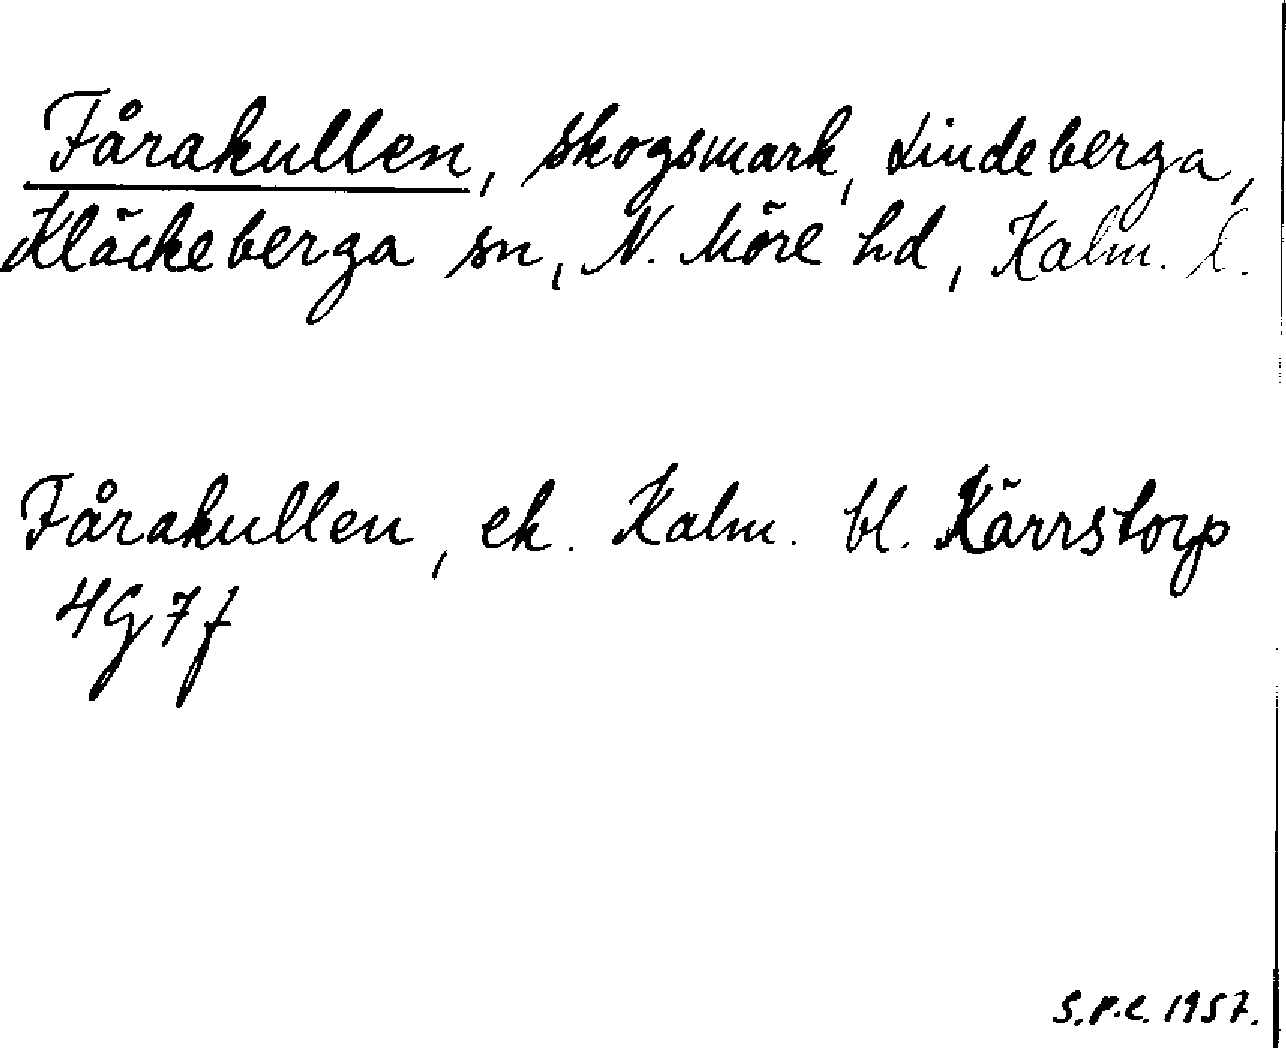 Fårakullen, skogsmark, Lindeberga,
Kläckeberga sn, N. Möre hd, Kalm. l.
Fårakullen, ek. Kalm. bl. Kärrstorp
4G7f
S.P.C. 1957.